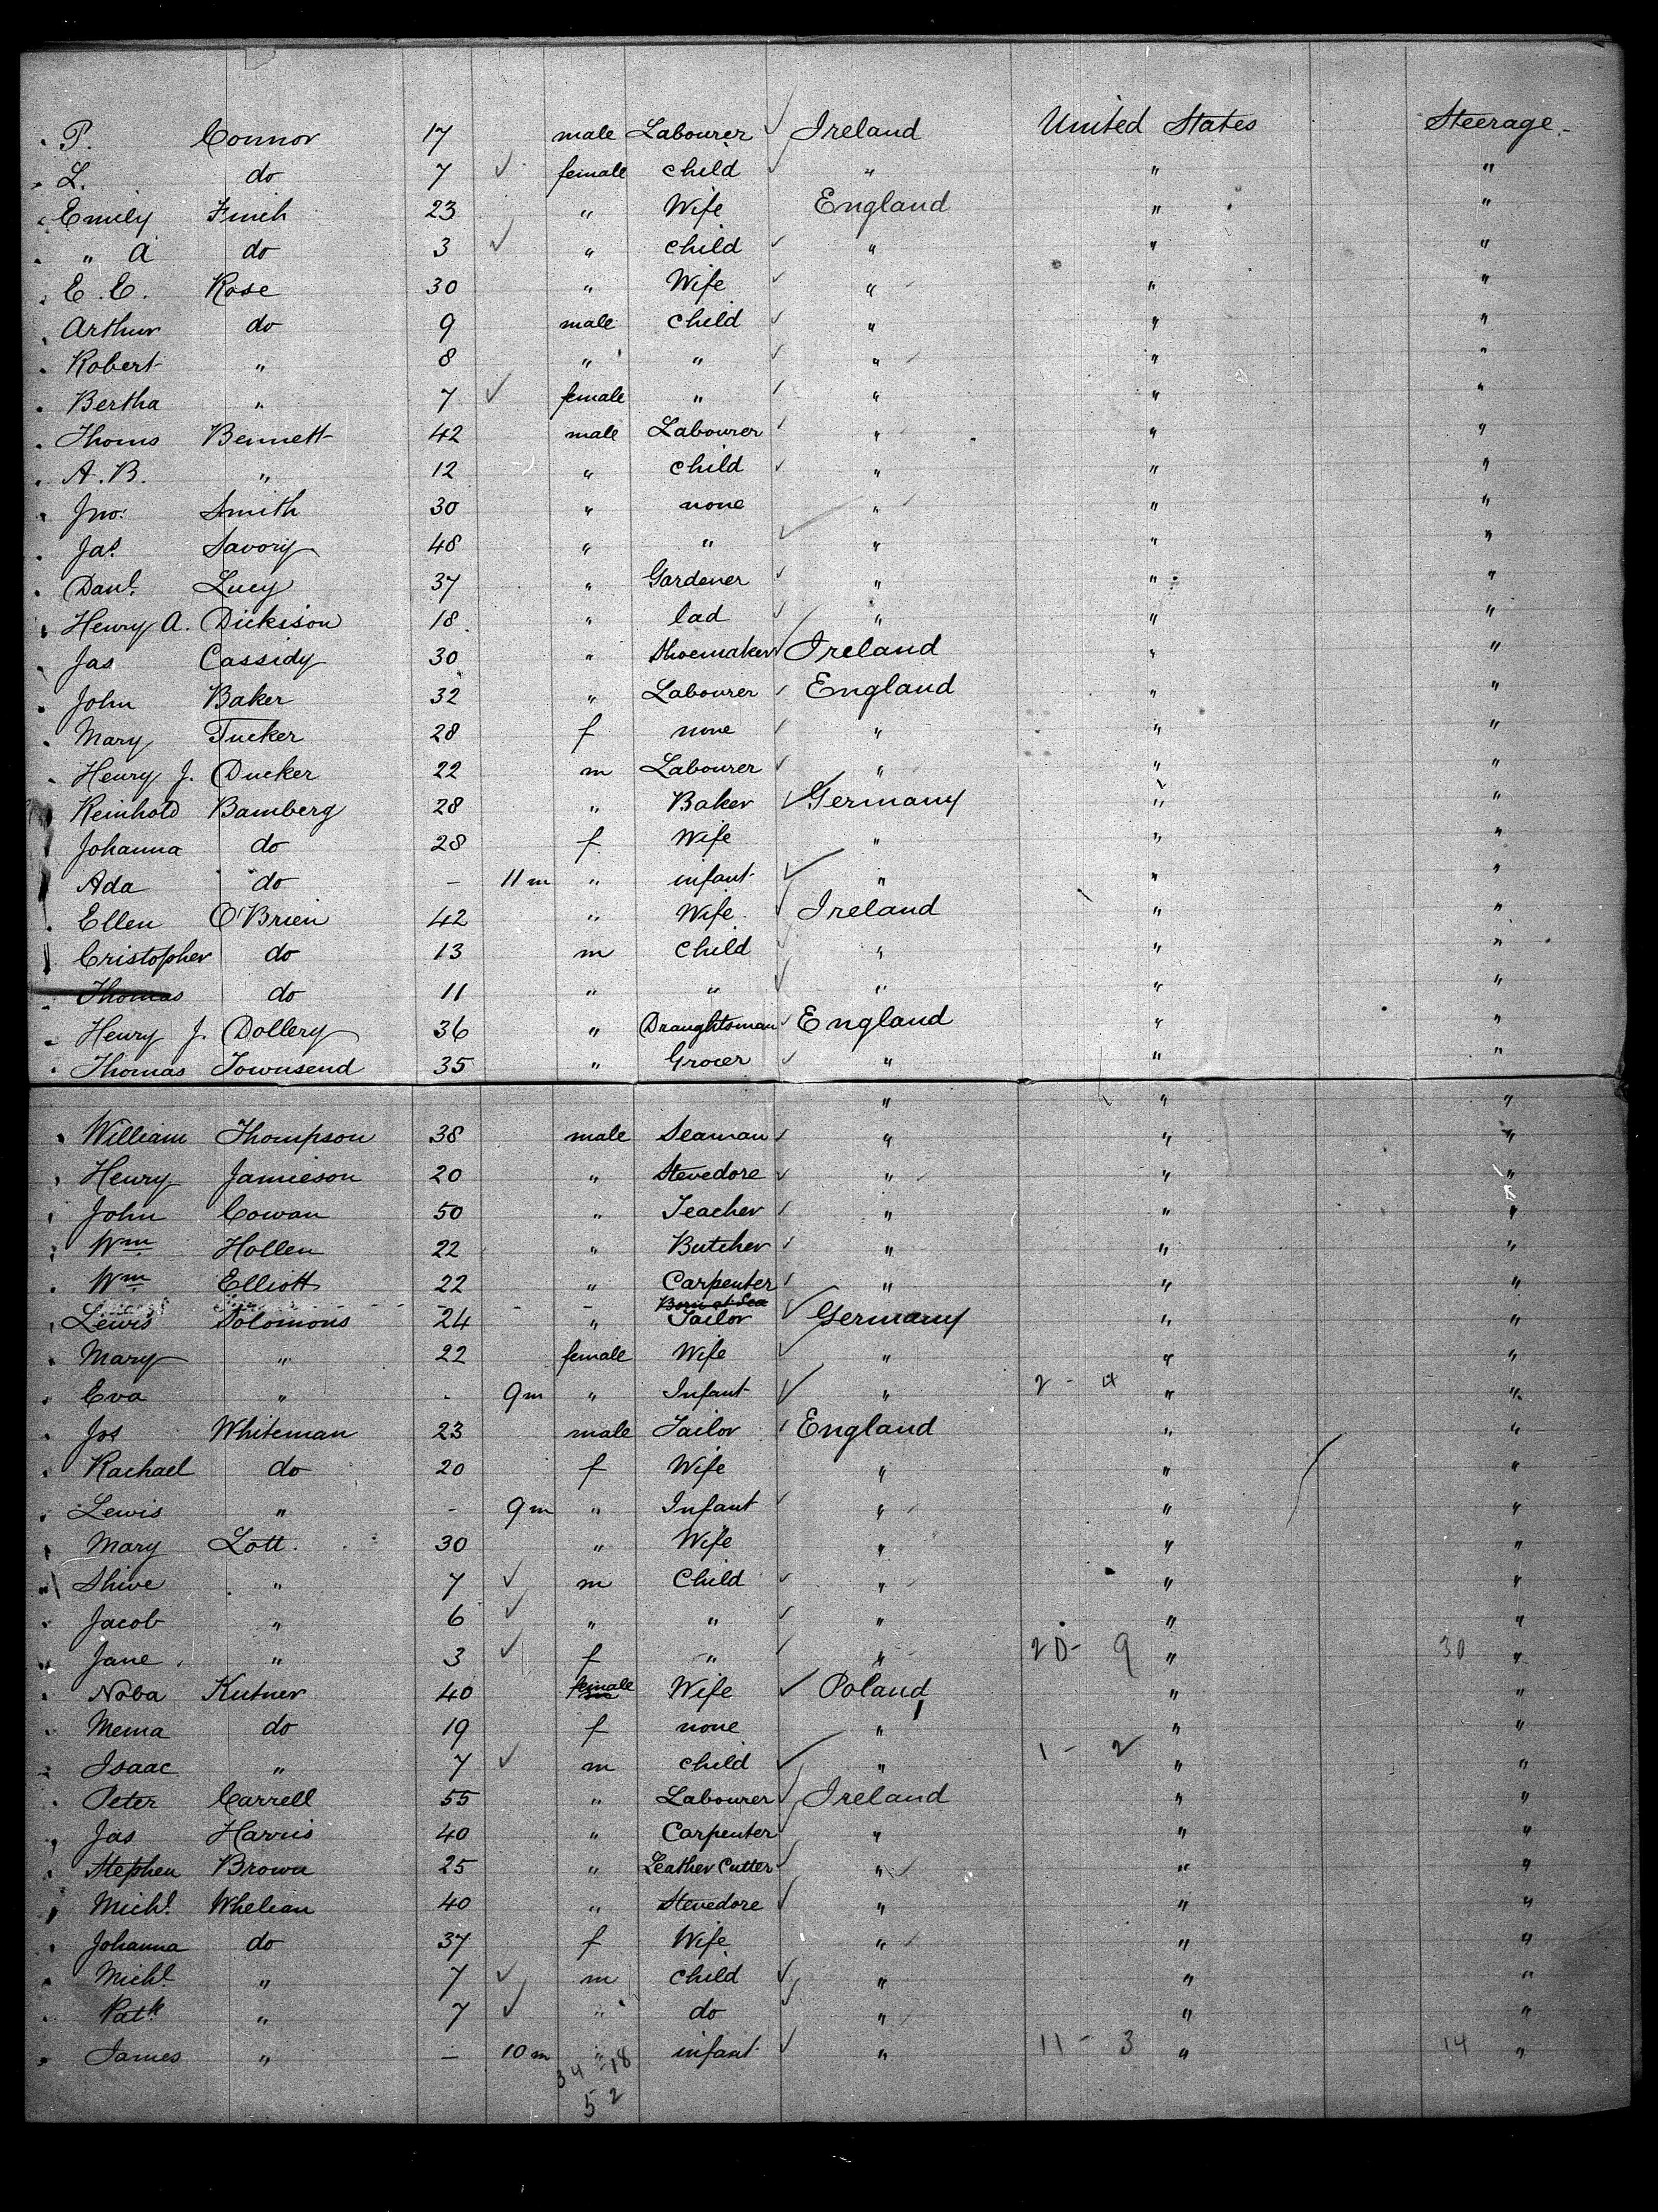 P. Connor 17 male Labourer ✓ Ireland United States Steerage
L. do 7 ✓ female child ✓ " " "
Emily Finch 23 " Wife England " "
" A do 3 ✓ " child ✓ " " "
E. E. Rose 30 " Wife ✓ " " "
Arthur do 9 male child ✓ " " "
Robert " 8 " " ✓ " " "
Bertha " 7 ✓ female " ✓ " " "
Thoms Bennett 42 male Labourer ✓ " " "
A. B. " 12 " child ✓ " " "
Jno: Smith 30 " none " " "
Jas Savory 48 " " ✓ " " "
Danl. Lucy 37 " Gardener ✓ " " "
Henry A. Dickison 18 " lad ✓ " " "
Jas Cassidy 30 " Shoemaker ✓ Ireland " "
John Baker 32 " Labourer ✓ England " "
Mary Tucker 28 f none ✓ " " "
Henry J. Ducker 22 m Labourer ✓ " " "
Reinhold Bamberg 28 " Baker ✓ Germany " "
Johanna do 28 f Wife " " "
Ada do - 11 m " infant ✓ " " "
Ellen O'Brien 42 " Wife ✓ Ireland " "
Cristopher do 13 m child ✓ " " "
Thomas do 11 " " ✓ " " "
Henry J. Dollery 36 " Draughtsman ✓ England " "
Thomas Townsend 35 " Grocer ✓ " " "
" " "
William Thompson 38 male Seaman ✓ " " "
Henry Jamieson 20 " Stevedore ✓ " " "
John Cowan 50 " Teacher ✓ " " "
Wm Hollen 22 " Butcher ✓ " " "
Wm Elliott 22 " Carpenter ✓ " " "
Born at Sea
Lewis Solomons 24 " Tailor ✓ Germany " "
Mary " 22 female Wife ✓ " " "
Eva " - 9 m " Infant ✓ " 2 - 4 " "
Jos Whiteman 23 male Tailor ✓ England " "
Rachael do 20 f Wife " " "
Lewis " - 9 m " Infant ✓ " " "
Mary Lott. 30 " Wife " " "
Shive " 7 ✓ m Child ✓ " " "
Jacob " 6 ✓ " " ✓ " " "
Jane " 3 ✓ f " ✓ " 20 - 9 " 30 "
Noba Kutner 40 female Wife ✓ Poland " "
Mema do 19 f none " " "
Isaac " 7 ✓ m child ✓ " 1 - 2 " "
Peter Carrell 55 " Labourer ✓ Ireland " "
Jas Harris 40 " Carpenter ✓ " " "
Stephen Brown 25 " Leather Cutter ✓ " " "
Michl. Whelean 40 " Stevedore ✓ " " "
Johanna do 37 f Wife " " "
Michl. " 7 ✓ m child ✓ " " "
Patk " 7 ✓ " do ✓ " " "
James " - 10 m " infant ✓ " 11 - 3 " 14 "
34 - 18
52